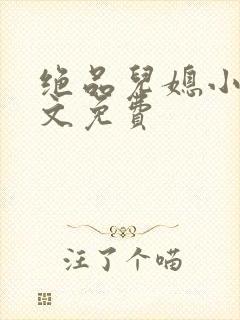 绝品兒媳小
文免费
汪了个喵